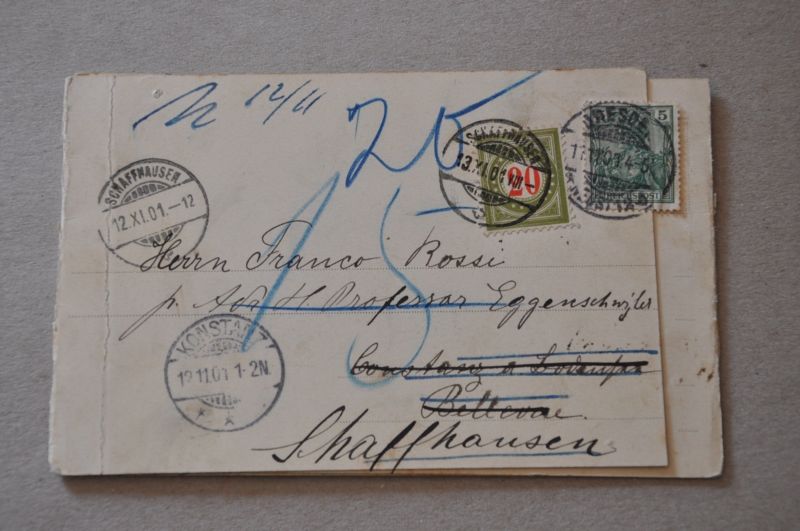 12/11
25
SCHAFFHAUSEN
13.XI.01.VIII–
20
5
DRESDEN
SCHAFFHAUSEN
12.XI.01.–12
15
Herrn Franco Rossi
p. Adr H Professor Eggenschwyler
Constanz a Bodensee
Bellevue.
KONSTANZ
12.11.01 1-2N.
* *
Shaffhausen